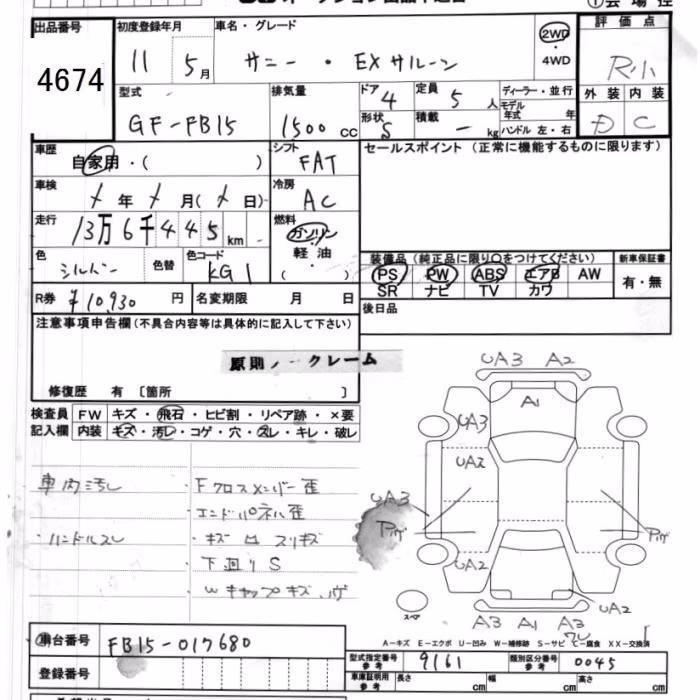 ①会場控
出品番号 4674
初度登録年月 11 5月
車名・グレード サニー・EXサルーン
2WD・4WD
評価点 R小
外装 D 内装 C
型式 GF-FB15
排気量 1500cc
ドア 4 形状 S
定員 5人
積載 - kg
ディーラー・並行
モデル年式 年
ハンドル 左・右
車歴 自家用・( )
シフト FAT
セールスポイント (正常に機能するものに限ります)
車検 年 月( 日)
冷房 AC
走行 13万6千445km
燃料 ガソリン 軽油 ( )
色 シルバー 色替
色コード KG1
装備品 (純正品に限り○をつけてください)
PS PW ABS エアB AW
SR ナビ TV カワ
新車保証書 有・無
R券 ¥10,930円
名変期限 月 日
後日品
注意事項申告欄 (不具合内容等は具体的に記入して下さい)
原則ノークレーム
修復歴 有 〔箇所 〕
検査員記入欄
FW キズ・飛石・ヒビ割・リペア跡・×要
内装 キズ・汚レ・コゲ・穴・スレ・キレ・破レ
車内汚レ
・ハンドルスレ
・Fクロスメンバー歪
・エンドパネル歪
・キズ ロ スリキズ
・下廻りS
・Wキャップキズ
UA3 A2
A1
UA3
UA2
UA3
UA2
UA2
スペア
A3 A1 A3
A-キズ E-エクボ U-凹み W-補修跡 S-サビ C-腐食 XX-交換済
車台番号 FB15-017680
登録番号
型式指定番号 参考 9161
類別区分番号 参考 0045
車庫証明用 参考 長さ cm 幅 cm 高さ cm